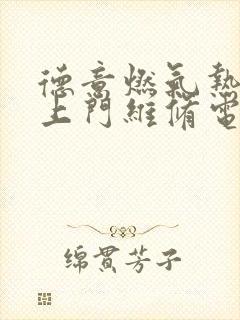 德意燃氣熱
上門維脩電
绵贯芳子